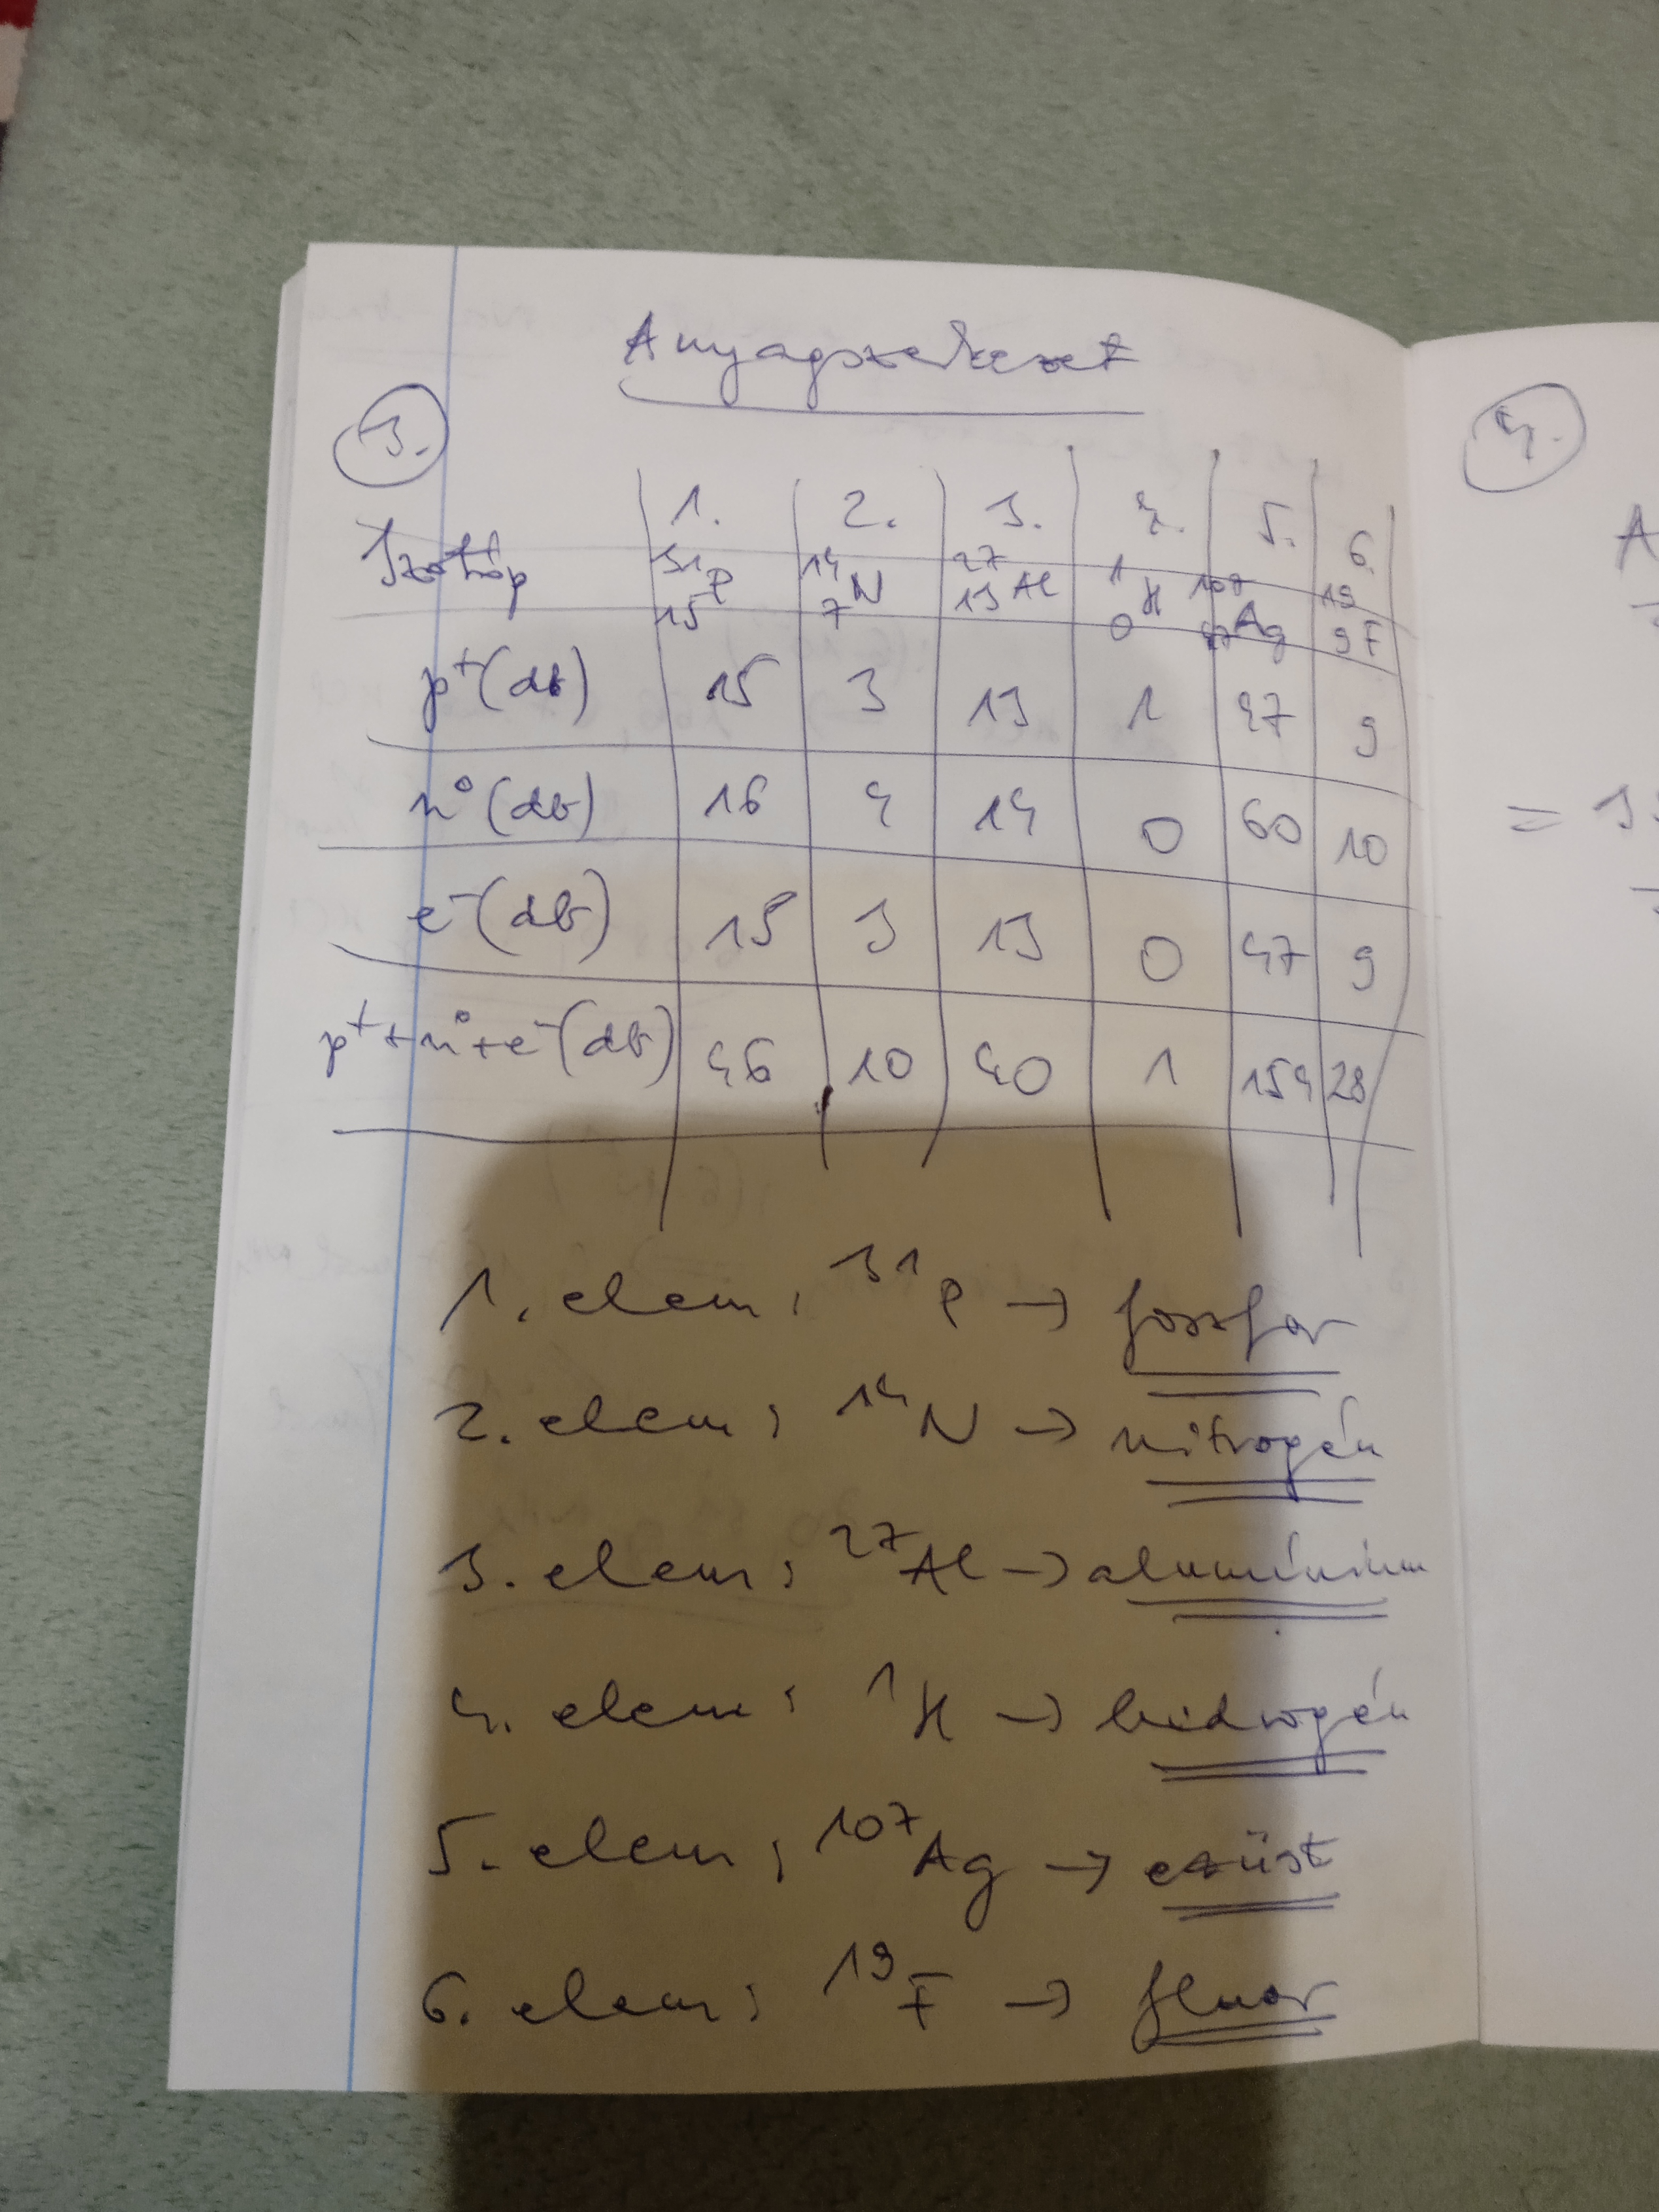 Anyagszerkezet
3.
1. 2. 3. 4. 5. 6.
Izotóp 31 15 P 14 7 N 27 13 Al 1 0 H 107 47 Ag 19 9 F
p+(db) 15 3 13 1 47 9
n°(db) 16 4 14 0 60 10
e-(db) 15 3 13 0 47 9
p++n°+e-(db) 46 10 40 1 154 28
1. elem: 31P → foszfor
2. elem: 14N → nitrogén
3. elem: 27Al → alumínium
4. elem: 1H → hidrogén
5. elem: 107Ag → ezüst
6. elem: 19F → fluor
4.
A
=